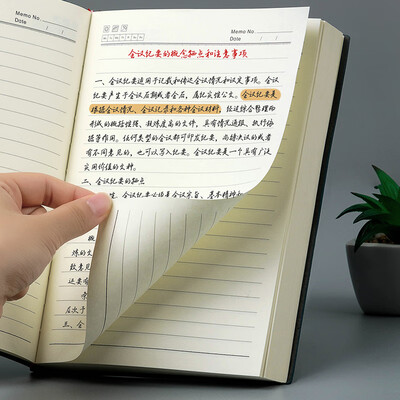 Memo No
Date / /
Memo No
Date / /
会议纪要的概念特点和注意事项
一、会议纪要适用于记载和传达会议情况和议定事项。会议
纪要产生于会议后期或者会后,属纪实性公文。会议纪要是
根据会议情况、会议记录和各种会议材料,经过综合整理而
形成的概括性强、凝炼度高的文件,具有情况通报、执行依
据等作用。任何类型的会议都可印发纪要,尚待决议的或者
有不同意见的,也可以写入纪要。会议纪要是一个具有广泛
实用价值的文种。
二、会议纪要的特点
会议纪要必须是会议宗旨、基本精神和
概
炼的文
致意见
还要
层次于
三、会